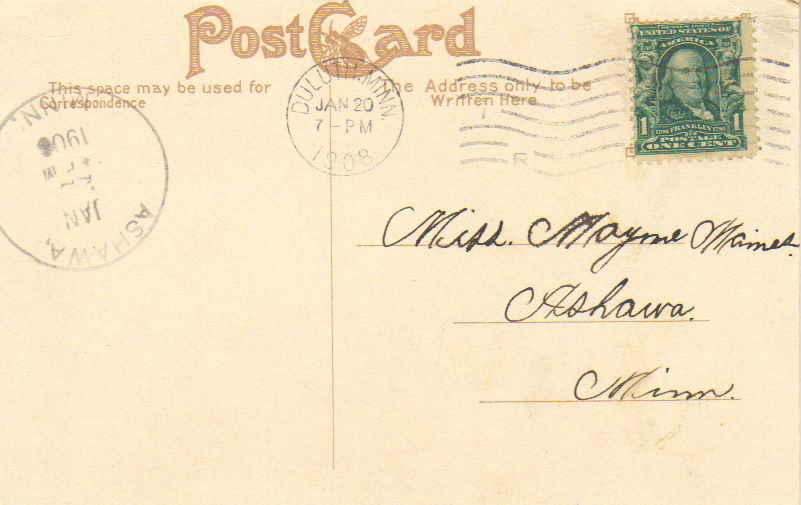 Post Card
This space may be used for
Correspondence
The Address only to be
Written Here
DULUTH, MINN.
JAN 20
7-PM
1908
R
ASHAWA,
JAN
1908
UNITED STATES OF
AMERICA
1 FRANKLIN 1
POSTAGE
ONE CENT
Miss. Mayme Maines.
Ashawa.
Minn.